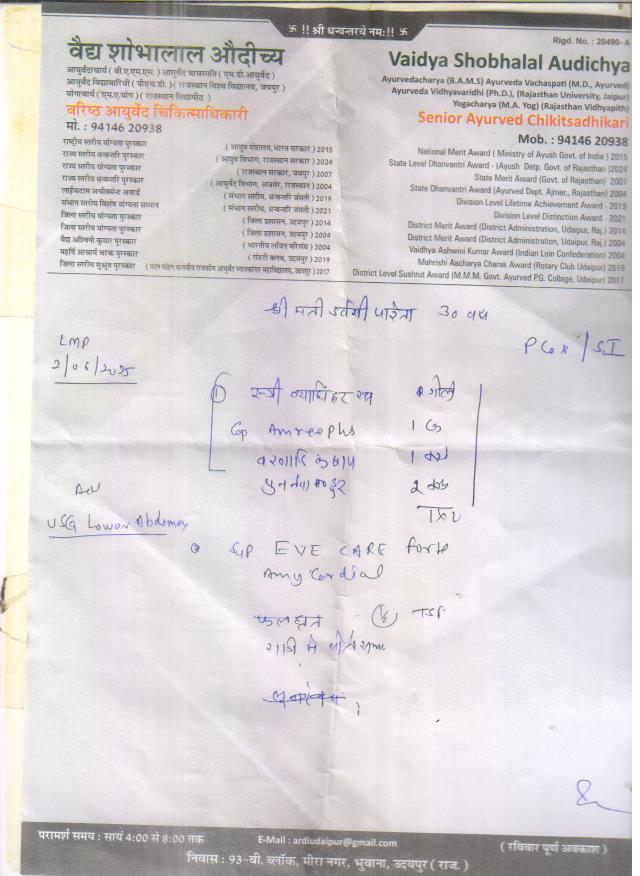 卐 !! श्री धन्वन्तरये नमः !! 卐
Rigd. No. : 20490- A
वैद्य शोभालाल औदीच्य
आयुर्वेदाचार्य ( बी.ए.एम.एस. ) आयुर्वेद वाचस्पति ( एम.डी.आयुर्वेद )
आयुर्वेद विद्यावारिधी ( पीएच.डी. ) ( राजस्थान विश्व विद्यालय, जयपुर )
योगाचार्य ( एम.ए.योग ) ( राजस्थान विद्यापीठ )
वरिष्ठ आयुर्वेद चिकित्साधिकारी
मो. : 94146 20938
राष्ट्रीय स्तरीय योग्यता पुरस्कार ( आयुष मंत्रालय, भारत सरकार ) 2015
राज्य स्तरीय धन्वन्तरि पुरस्कार ( आयुष विभाग, राजस्थान सरकार ) 2024
राज्य स्तरीय योग्यता पुरस्कार ( राजस्थान सरकार, जयपुर ) 2007
राज्य स्तरीय धन्वन्तरि पुरस्कार ( आयुर्वेद विभाग, अजमेर, राजस्थान ) 2004
लाईफटाम अचीवमेंट अवार्ड ( संभाग स्तर, धन्वन्तरि जंयती ) 2019
संभाग स्तरीय विशेष योग्यता सम्मान ( संभाग स्तर, धन्वन्तरि जंयती ) 2021
जिला स्तरीय योग्यता पुरस्कार ( जिला प्रशासन, उदयपुर ) 2014
जिला स्तरीय योग्यता पुरस्कार ( जिला प्रशासन, उदयपुर ) 2004
वैद्य अश्विनी कुमार पुरस्कार ( भारतीय लॉयन परिसंघ ) 2004
महर्षि आचार्य चरक पुरस्कार ( रोटरी क्लब, उदयपुर ) 2019
जिला स्तरीय सुश्रुत पुरस्कार ( मदन मोहन मालवीय राजकीय आयुर्वेद स्नातकोत्तर महाविद्यालय, उदयपुर ) 2017
Vaidya Shobhalal Audichya
Ayurvedacharya (B.A.M.S) Ayurveda Vachaspati (M.D., Ayurved)
Ayurveda Vidhyavaridhi (Ph.D.), (Rajasthan University, Jaipur)
Yogacharya (M.A. Yog) (Rajasthan Vidhyapith)
Senior Ayurved Chikitsadhikari
Mob. : 94146 20938
National Merit Award ( Ministry of Ayush Govt. of India ) 2015
State Level Dhanvantri Award - (Ayush Detp. Govt. of Rajasthan )2024
State Merit Award (Govt. of Rajasthan) 2007
State Dhanvantri Award (Ayurved Dept. Ajmer., Rajasthan) 2004
Division Level Lifetime Achievement Award - 2019
Division Level Distinction Award - 2021
District Merit Award (District Administration, Udaipur, Raj.) 2014
District Merit Award (District Administration, Udaipur, Raj.) 2004
Vaidhya Ashwini Kumar Award (Indian Loin Confederation) 2004
Mahrishi Aacharya Charak Award (Rotary Club Udaipur) 2019
District Level Sushrut Award (M.M.M. Govt. Ayurved P.G. Collage, Udaipur) 2017
श्री मती 30 वर्ष
LMP
2/06/2025
① स्त्री व्याधिहर रस 2 गोली
Cap Amree plus 1 C
1
पुनर्नवा मंडूर 2
Adv
USG Lower Abdomen
Syp EVE CARE forte
Amy Cordial
फल घृत ½ TSF